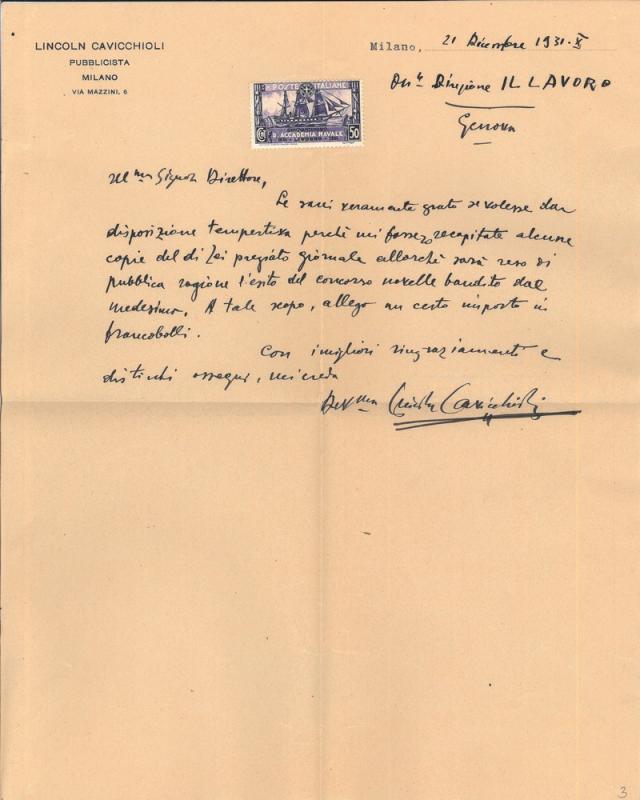 LINCOLN CAVICCHIOLI
PUBBLICISTA
MILANO
VIA MAZZINI, 6
Milano, 21 Dicembre 1931·X
On.le Direzione IL LAVORO
Genova
POSTE ITALIANE
R. ACCADEMIA NAVALE
CM 50
Ill.mo Signor Direttore,
Le sarei veramente grato se volesse dar
disposizione tempestiva perchè mi fossero recapitate alcune
copie del di Lei pregiato giornale allorchè sarà reso di
pubblica ragione l'esito del concorso novelle bandito dal
medesimo. A tale scopo, allego un certo importo in
francobolli.
Con i migliori ringraziamenti e
distinti ossequi, mi creda
Dev.mo Lincoln Cavicchioli
3